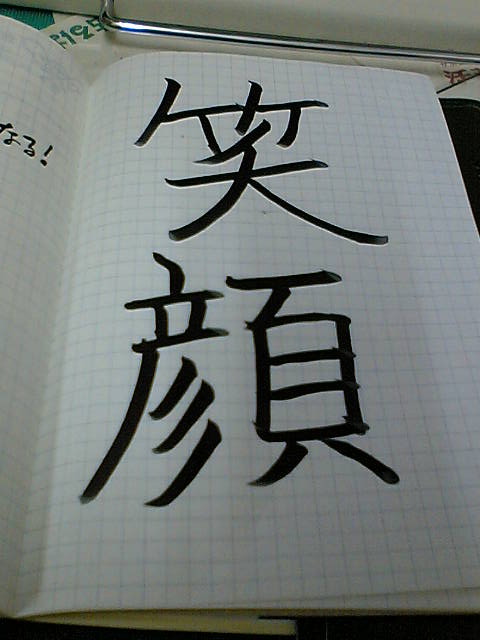 笑
顔
なる!